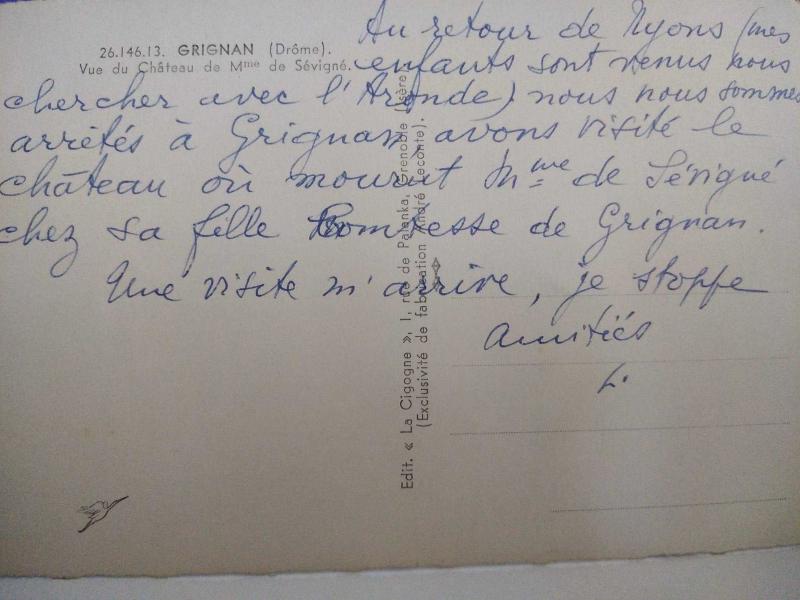 26.146.13. GRIGNAN (Drôme).
Vue du Château de Mme de Sévigné.
Au retour de Nyons (mes
enfants sont venus nous
chercher avec l'Aronde) nous nous sommes
arrêtés à Grignan, avons visité le
château où mourut Mme de Sévigné
chez sa fille Comtesse de Grignan.
Une visite m'arrive, je stoppe
Amitiés
L.
Edit. « La Cigogne », 1, rue de Palanka, Grenoble (Isère)
(Exclusivité de fabrication André Leconte).